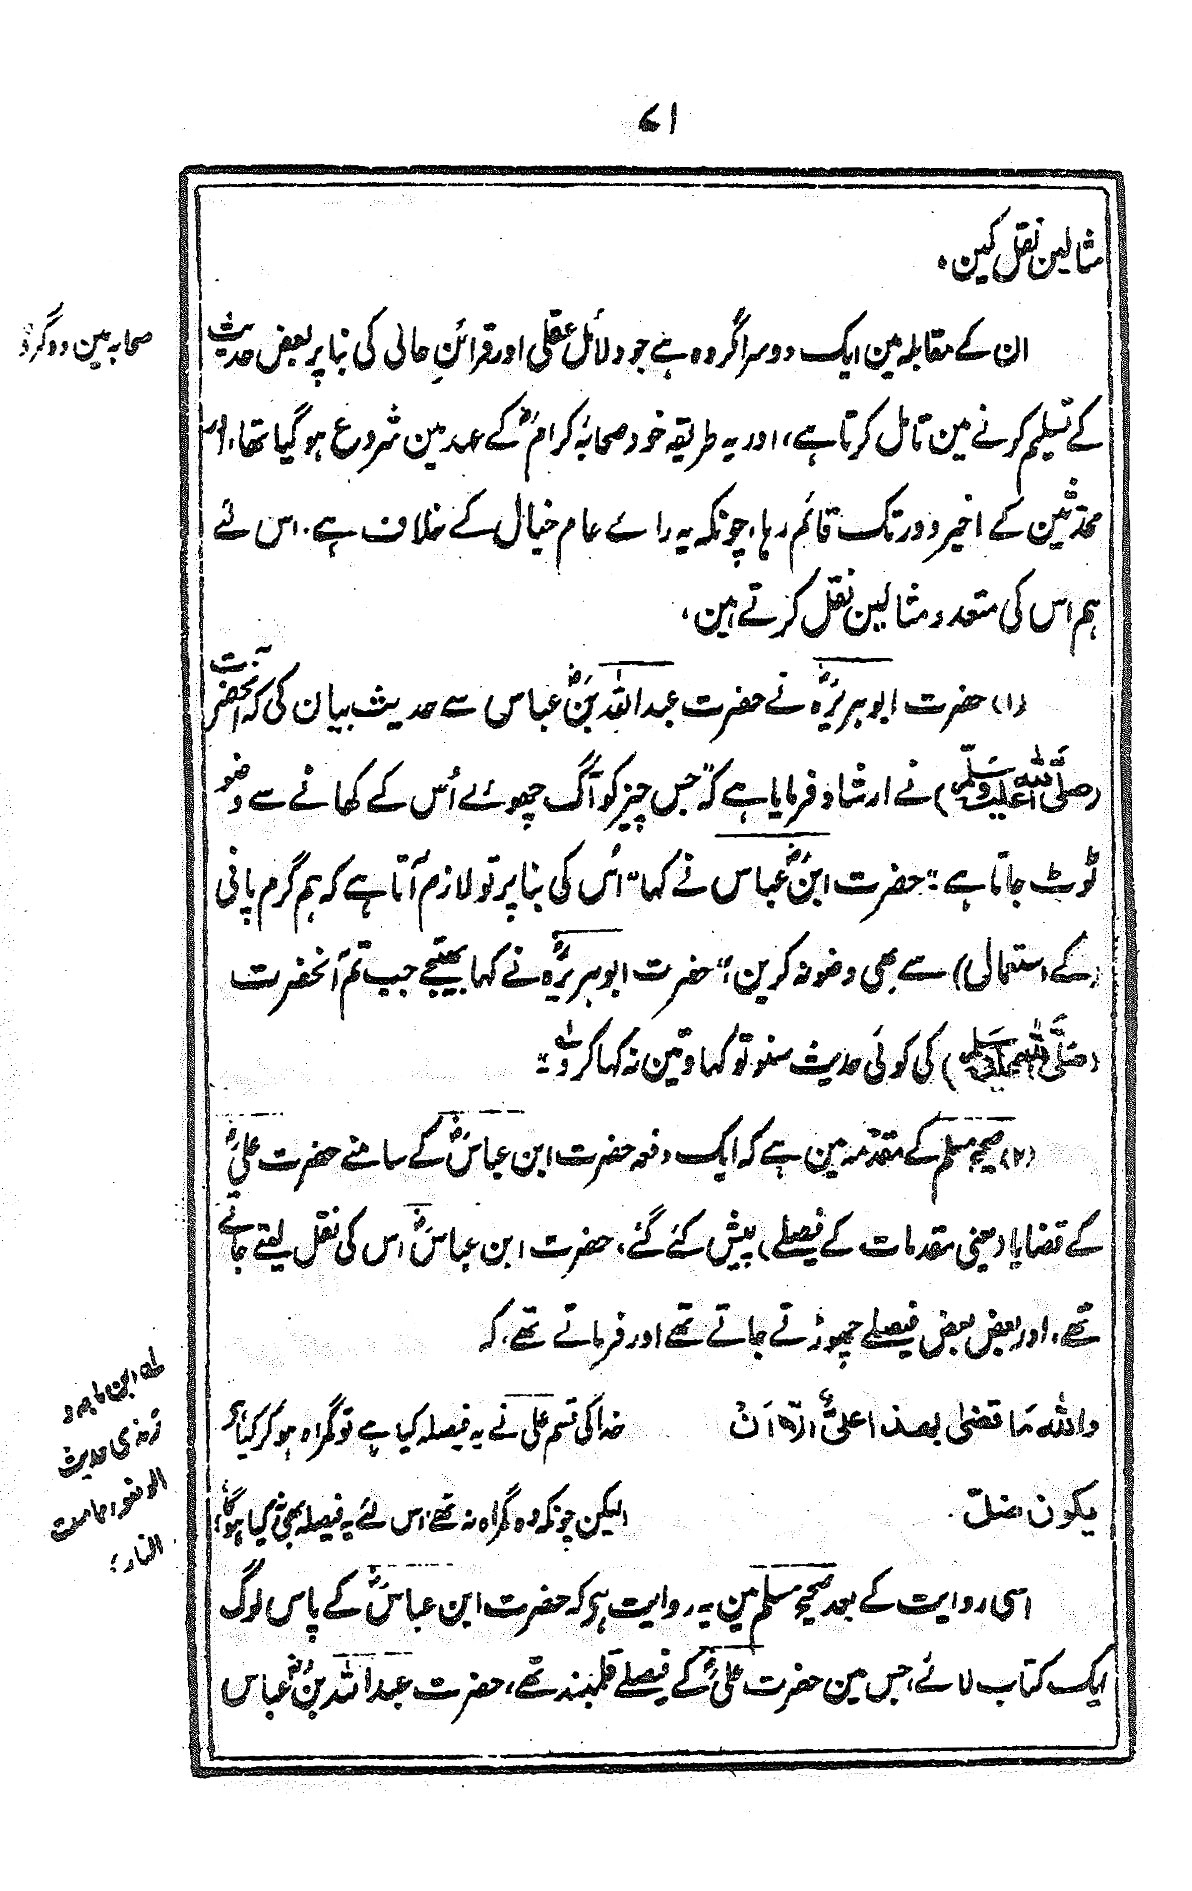 ۷۱
مثالین نقل کین،
ان کے مقابلہ مین ایک دوسرا گروہ ہے جو دلائل عقلی اور قرائن حالی کی بنا پر بعض حدیث
صحابہ مین دو گروہ
کے تسلیم کرنے مین تامل کرتا ہے، اور یہ طریقہ خود صحابۂ کرامؓ کے عہد مین شروع ہو گیا تھا، اور
محدثین کے اخیر دور تک قائم رہا، چونکہ یہ رائے عام خیال کے خلاف ہے، اس لئے
ہم اس کی متعدد مثالین نقل کرتے ہین،
(۱) حضرت ابوہریرہؓ نے حضرت عبداللہ بنؓ عباس سے حدیث بیان کی کہ آنحضرت
(صلی اللہ علیہ وسلم) نے ارشاد فرمایا ہے کہ "جس چیز کو آگ چھوئے اُس کے کھانے سے وضو
ٹوٹ جاتا ہے" حضرت ابنؓ عباس نے کہا "اُس کی بنا پر تو لازم آتا ہے کہ ہم گرم پانی
(کے استعمالی) سے بھی وضو نہ کرین؛" حضرت ابوہریرہؓ نے کہا بھتیجے جب تم آنحضرت
(صلی اللہ علیہ وسلم) کی کوئی حدیث سنو تو کہاوتین نہ کہا کرو"
(۲) صحیح مسلم کے مقدمہ مین ہے کہ ایک دفعہ حضرت ابن عباسؓ کے سامنے حضرت علیؓ
کے قضایا (یعنی مقدمات کے فیصلے) پیش کئے گئے، حضرت ابن عباسؓ اس کی نقل لیتے جاتے
تھے، اور بعض بعض فیصلے چھوڑتے جاتے تھے اور فرماتے تھے، کہ
واللہ مَا قضیٰ بھذا علیٌّ الّا اَنْ
خدا کی قسم علی نے یہ فیصلہ کیا ہے تو گمراہ ہو کر کیا ہے
یکون ضلّ
(لیکن چونکہ وہ گمراہ نہ تھے، اس لئے یہ فیصلہ بھی نہین کیا ہوگا)
اسی روایت کے بعد صحیح مسلم مین یہ روایت ہے کہ حضرت ابن عباسؓ کے پاس لوگ
ایک کتاب لائے، جس مین حضرت علیؓ کے فیصلے قلمبند تھے، حضرت عبداللہ بنؓ عباس
لہ ابن ماجہ و
ترمذی حدیث
الوضوء مما مست
النار؛